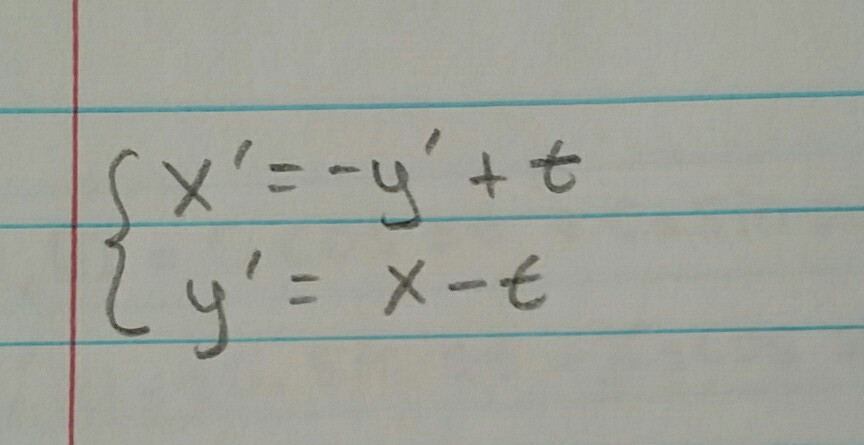 { x' = -y' + t
y' = x - t